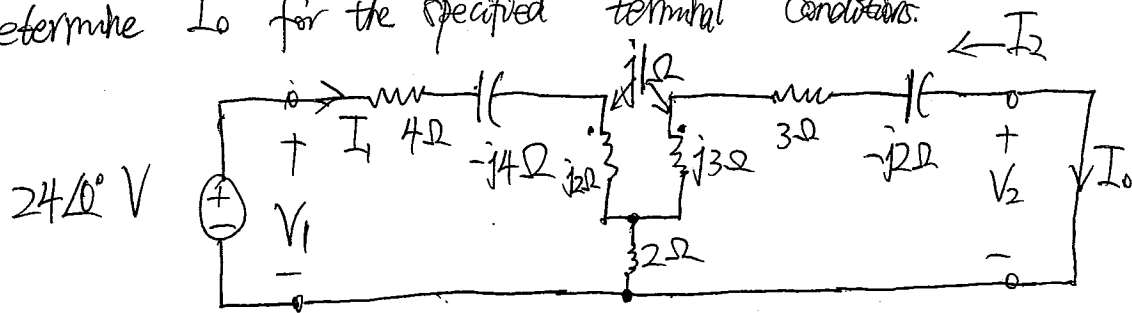 etermine I₀ for the specified terminal conditions.
j1Ω
←I₂
I₁ 4Ω -j4Ω j2Ω j3Ω 3Ω -j2Ω
+ +
24∠0° V + − V₁ V₂ I₀
2Ω
− −